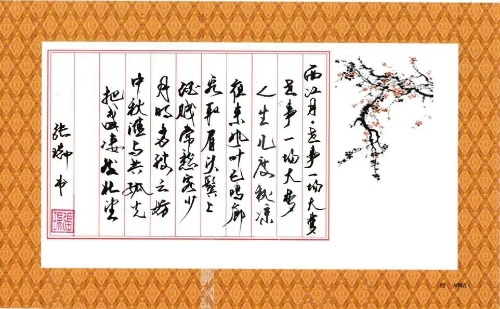 西江月·世事一场大梦
世事一场大梦
人生几度秋凉
夜来风叶已鸣廊
看取眉头鬓上
酒贱常愁客少
月明多被云妨
中秋谁与共孤光
把盏凄然北望
张瑞书